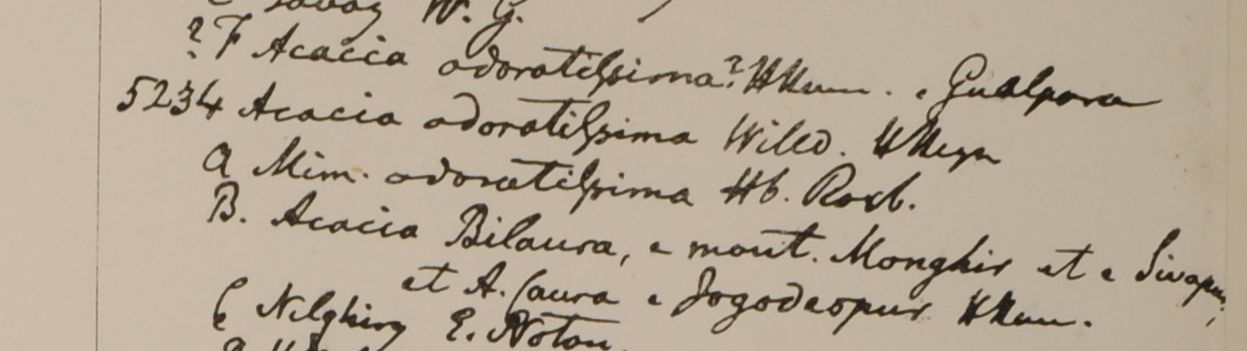 Tavoy W. G.
? F Acacia odoratissima? HHam. e Gualpara
5234 Acacia odoratissima Willd. HHeyn
a Mim. odoratissima Hb. Roxb.
B. Acacia Bilaura, e mont. Monghir et e Sivapur,
et A. Caura e Jogodeopur HHam.
C Nilghiry E. Noton.